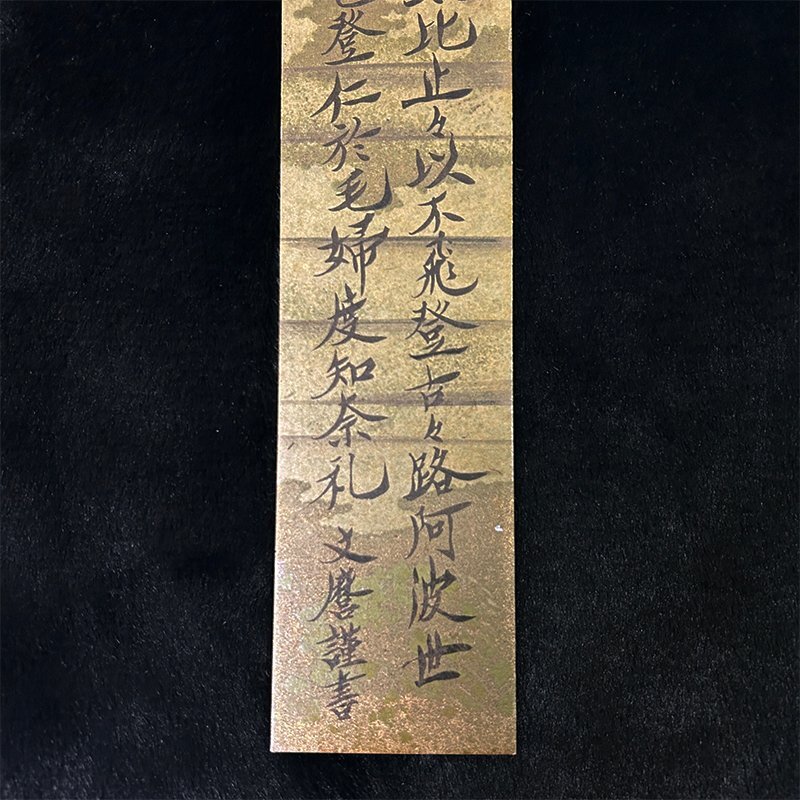 比止々以不飛登古々路阿波世
登仁於毛婦度知奈礼 文麿謹書